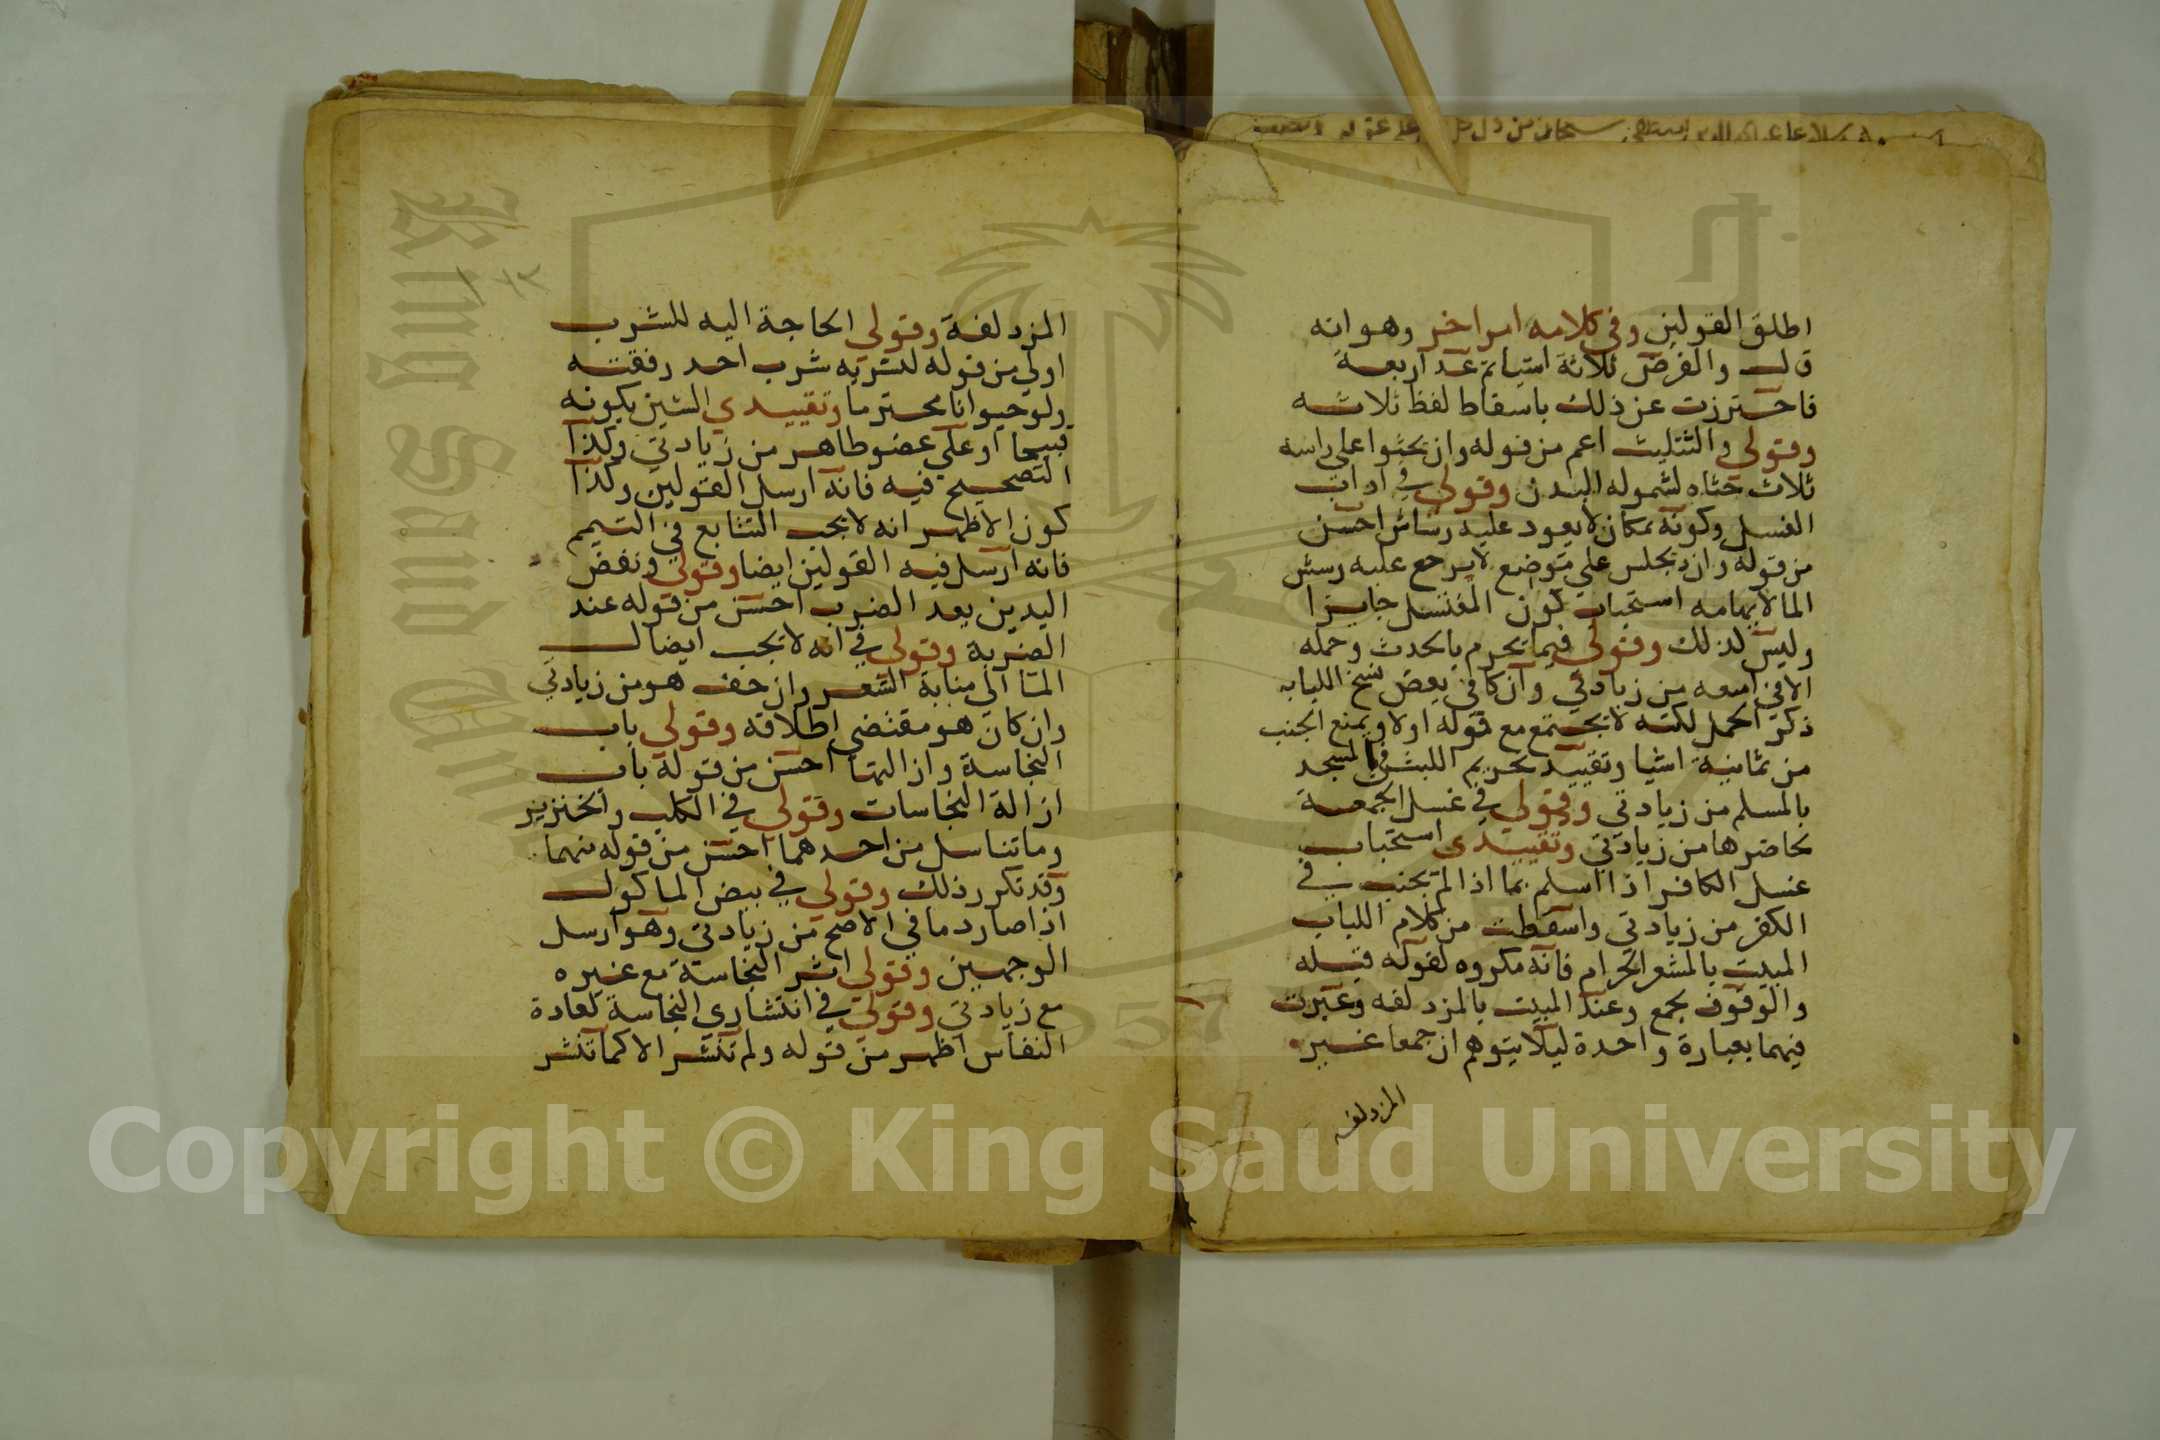 اطلق القولين وفي كلامه امر اخر وهو انه
قال والفرض ثلاثة اشيا ثم عد اربعة
فاحترزت عن ذلك باسقاط لفظ ثلاثه
وقولي والتثليث اعم من قوله وان يحثوا على راسه
ثلاث حثاه لشموله البدن وقولي في اداب
الغسل وكونه بمكان لا يعود عليه رشاش احسن
من قوله وان يجلس على موضع لا يرجع عليه رسش
الما لايهامه استحباب كون المغتسل جايزا
وليس لذلك وقولي فيما يحرم بالحدث وحمله
الا في امتعه من زيادتي وان كا في بعض نسخ اللباب
ذكر الحمل لكنه لا يجتمع مع قوله اولا ويمنع الجنب
من ثمانية اشيا وتقييد تحريم اللبث في المسجد
بالمسلم من زيادتي وقولي في غسل الجمعة
لحاضرها من زيادتي وتقييدي استحباب
غسل الكافر اذا اسلم بما اذا لم يجنب في
الكفر من زيادتي واسقطت من كلام اللباب
المبيت بالمشعر الحرام فانه مكروه لقوله قبله
والوقوف بجمع وعند المبيت بالمزدلفه وعبرت
فيهما بعبارة واحدة ليلا يتوهم ان جمعا غير
المزدلفه
المزدلفة وقولي الحاجة اليه للشرب
اولى من قوله لشربه شرب احد رفقته
ولو حيوانا محترما وتقييدي الشين بكونه
قبيحا او على عضو طاهر من زيادتي وكذا
التصحيح فيه فانه ارسل القولين وكذا
كون الاظهر انه لا يجب التتابع في التيمم
فانه ارسل فيه القولين ايضا وقولي ونفض
اليدين بعد الضرب احسن من قوله عند
الضربة وقولي في انه لا يجب ايصال
الما الى منابة الشعر وان خف هو من زيادتي
وان كان هو مقتضى اطلاقه وقولي باب
النجاسة وازالتها احسن من قوله باب
ازالة النجاسات وقولي في الكلب والخنزير
وما تناسل من احدهما احسن من قوله منهما
وقد تكرر ذلك وقولي في بيض الماكول
اذا صار دما في الاصح من زيادتي وهو ارسل
الوجهين وقولي اثر النجاسة مع غيره
مع زيادتي وقولي في انتشاري النجاسة كعادة
النفاس اظهر من قوله ولم تنتشر الا كما تنتشر
Copyright © King Saud University
King Saud Univ
1957